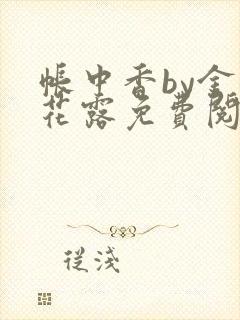 帳中香by金
花露免費閱
從淺